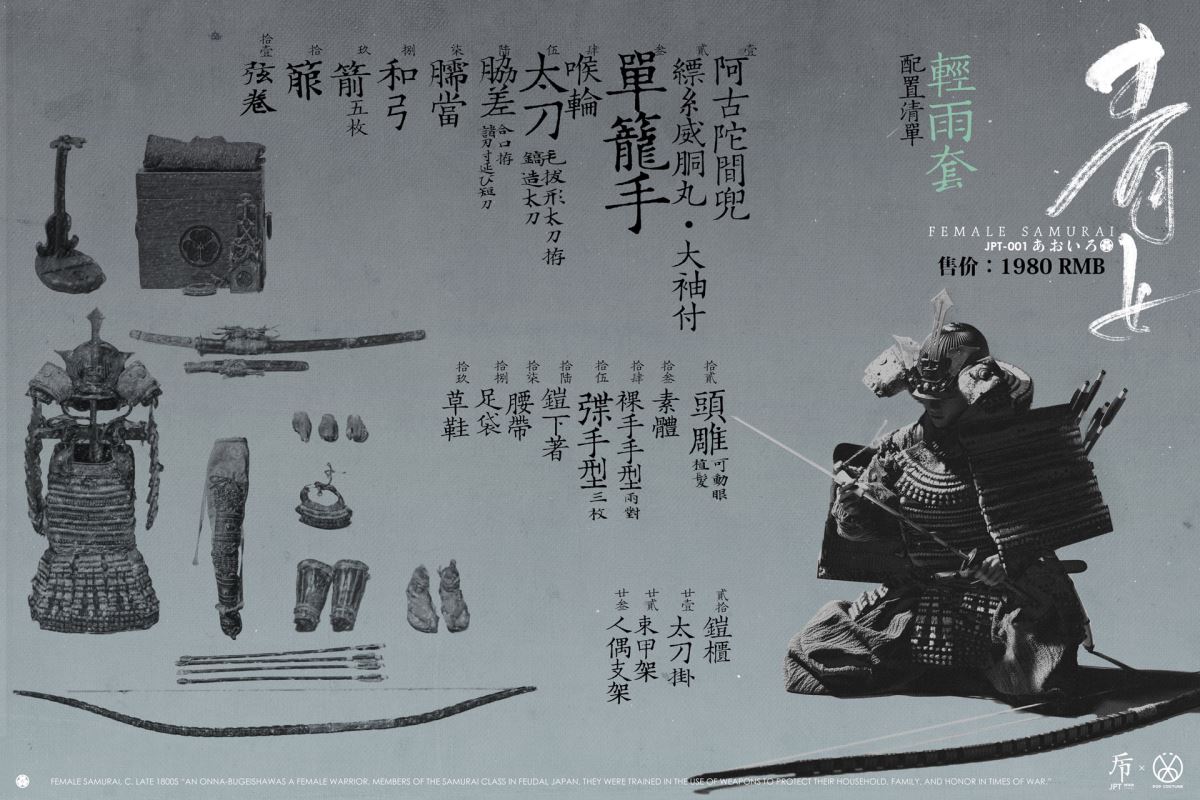 青女
FEMALE SAMURAI
JPT-001 あおいろ
售价：1980 RMB
輕雨套
配置清單
壹
阿古陀間兜
貳
縹糸威胴丸・大袖付
叁
單籠手
肆
喉輪
伍
太刀
毛拔形太刀拵
鎬造太刀
陸
脇差
合口拵
諸刃寸延び短刀
柒
臑當
捌
和弓
玖
箭 五枚
拾
箙
拾壹
弦卷
拾貳
頭雕
可動眼
植髮
拾叁
素體
拾肆
裸手手型 兩對
拾伍
弽手型 三枚
拾陸
鎧下著
拾柒
腰帶
拾捌
足袋
拾玖
草鞋
貳拾
鎧櫃
廿壹
太刀掛
廿貳
束甲架
廿叁
人偶支架
FEMALE SAMURAI C. LATE 1800S "AN ONNA-BUGEISHAWAS A FEMALE WARRIOR, MEMBERS OF THE SAMURAI CLASS IN FEUDAL JAPAN, THEY WERE TRAINED IN THE USE OF WEAPONS TO PROTECT THEIR HOUSEHOLD, FAMILY, AND HONOR IN TIMES OF WAR."
JPT
×
POP COSTUME